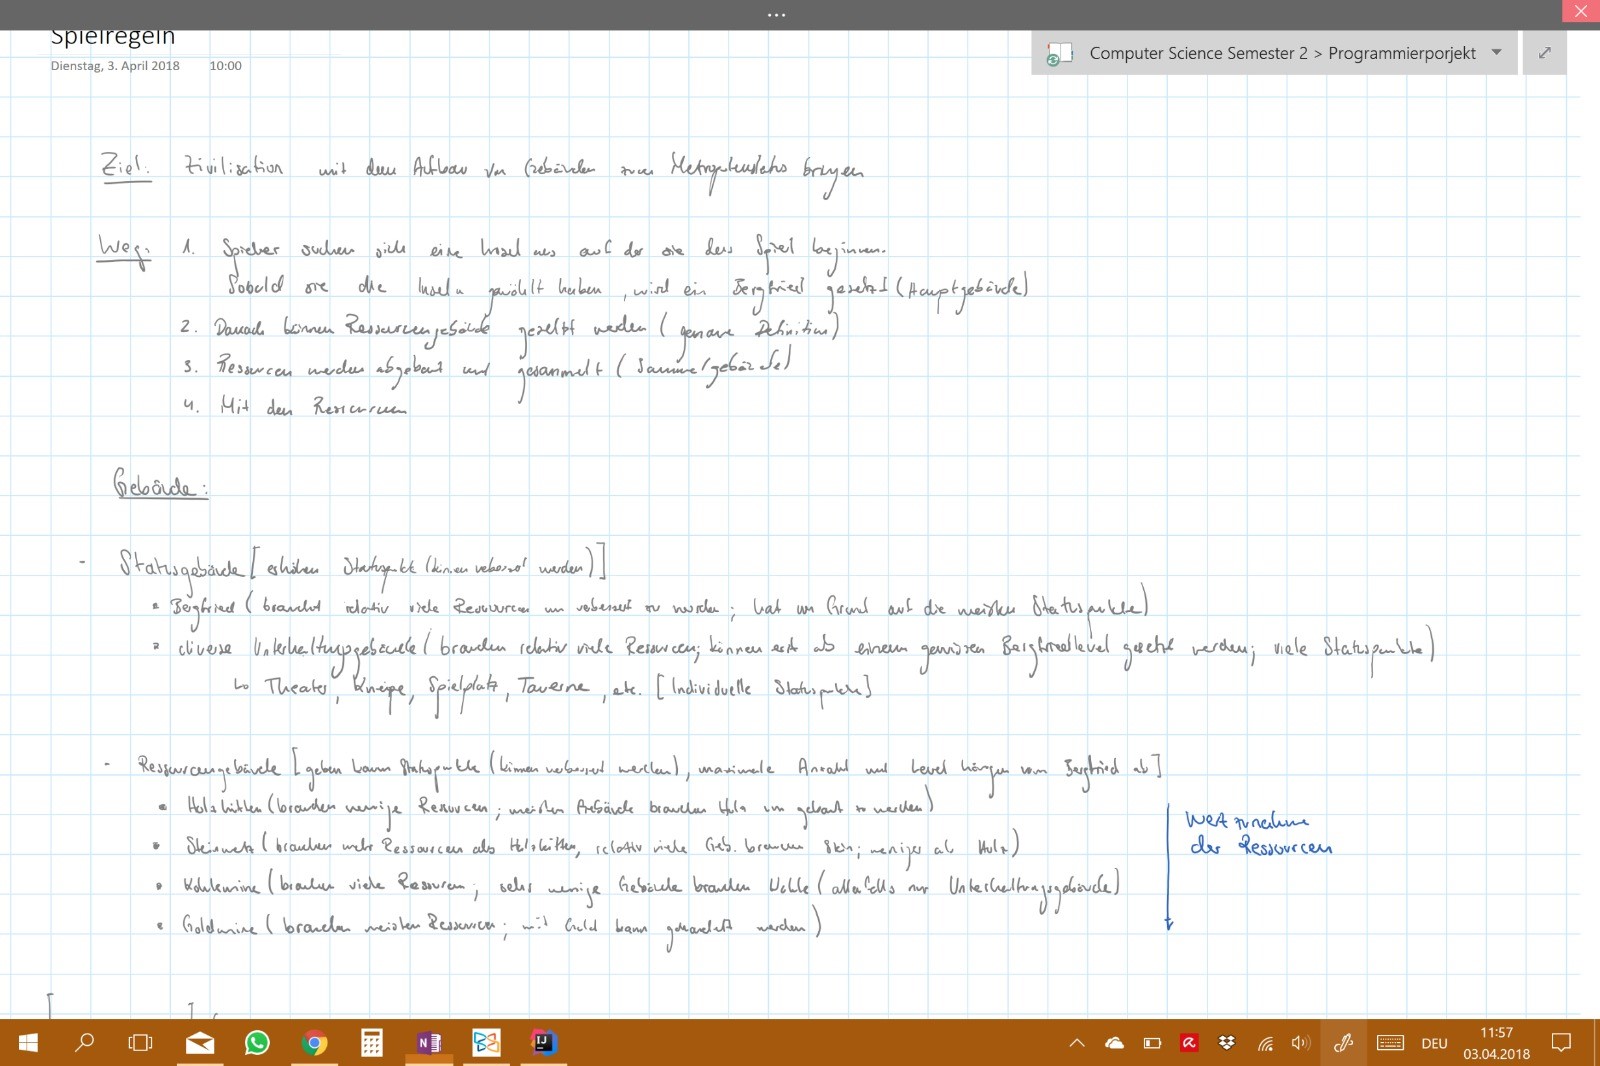 Spielregeln
Dienstag, 3. April 2018 10:00
Computer Science Semester 2 > Programmierporjekt
Ziel: Zivilisation mit dem Aufbau von Gebäuden zum Metropolenstatus bringen
Weg: 1. Spieler suchen sich eine Insel aus auf der sie das Spiel beginnen.
Sobald sie die Inseln gewählt haben, wird ein Bergfried gesetzt (Hauptgebäude)
2. Danach können Ressourcengebäude gesetzt werden (genaue Definition)
3. Ressourcen werden abgebaut und gesammelt (Sammelgebäude)
4. Mit den Ressourcen
Gebäude:
- Statusgebäude [erhöhen Statuspunkte (können verbessert werden)]
• Bergfried (braucht relativ viele Ressourcen um verbessert zu werden; hat im Grund auf die meisten Statuspunkte)
• diverse Unterhaltungsgebäude (brauchen relativ viele Resourcen; können erst ab einem gewissen Bergfriedlevel gesetzt werden; viele Statuspunkte)
↳ Theater, Kneipe, Spielplatz, Taverne, etc. [Individuelle Statuspunkte]
- Ressourcengebäude [geben kaum Statuspunkte (können verbessert werden), maximale Anzahl und Level hängen vom Bergfried ab]
• Holzhütten (brauchen wenige Resourcen; meisten Gebäude brauchen Holz um gebaut zu werden)
• Steinmetz (brauchen mehr Ressourcen als Holzhütten, relativ viele Geb. brauchen Stein; weniger als Holz)
• Kohlemine (brauchen viele Resourcen; sehr wenige Gebäude brauchen Kohle (allenfalls nur Unterhaltungsgebäude)
• Goldmine (brauchen meisten Ressourcen; mit Gold kann gehandelt werden)
Wertzunahme
der Ressourcen
DEU
11:57
03.04.2018